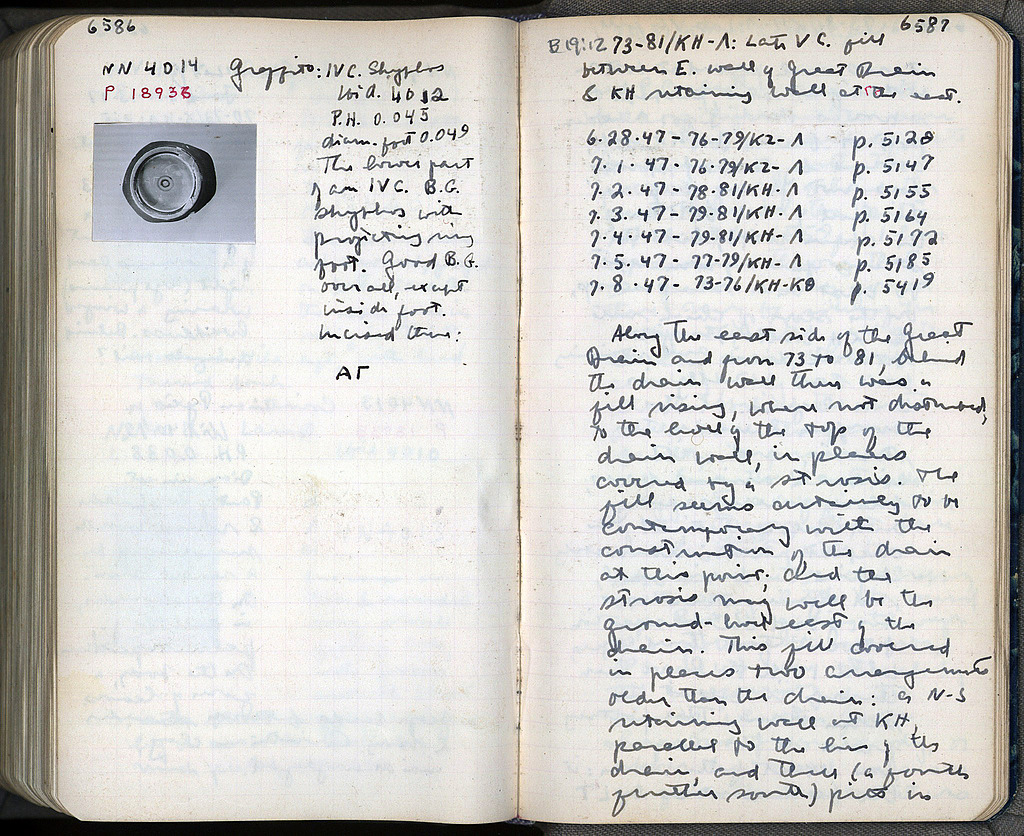 6586
NN 4014 Graffito: IV C. Skyphos
P 18938
Wid. 4012
P.H. 0.045
diam. foot 0.049
The lower part
of an IV C. B.G.
skyphos with
projecting ring
foot. Good B.G.
over all, except
inside foot.
Incised there:
ΑΓ
6587
B 19:12 73-81/ΚΗ-Λ: Late V C. fill
between E. wall of Great Drain
& ΚΗ retaining wall at the east.
6.28.47 - 76-79/ΚΖ-Λ p. 5128
7.1.47 - 76-79/ΚΖ-Λ p. 5147
7.2.47 - 78-81/ΚΗ-Λ p. 5155
7.3.47 - 79-81/ΚΗ-Λ p. 5164
7.4.47 - 79-81/ΚΗ-Λ p. 5172
7.5.47 - 77-79/ΚΗ-Λ p. 5185
7.8.47 - 73-76/ΚΗ-ΚΘ p. 5419
Along the east side of the Great
Drain and from 73 to 81, behind
the drain wall there was a
fill rising, where not disturbed,
to the level of the top of the
drain wall, in places
covered by a strosis. The
fill seems certainly to be
contemporary with the
construction of the drain
at this point. And the
strosis may well be the
ground-level east of the
drain. This fill covered
in places two arrangements
older than the drain: a N-S
retaining wall at ΚΗ,
parallel to the line of the
drain, and three (a fourth
further south) pits in